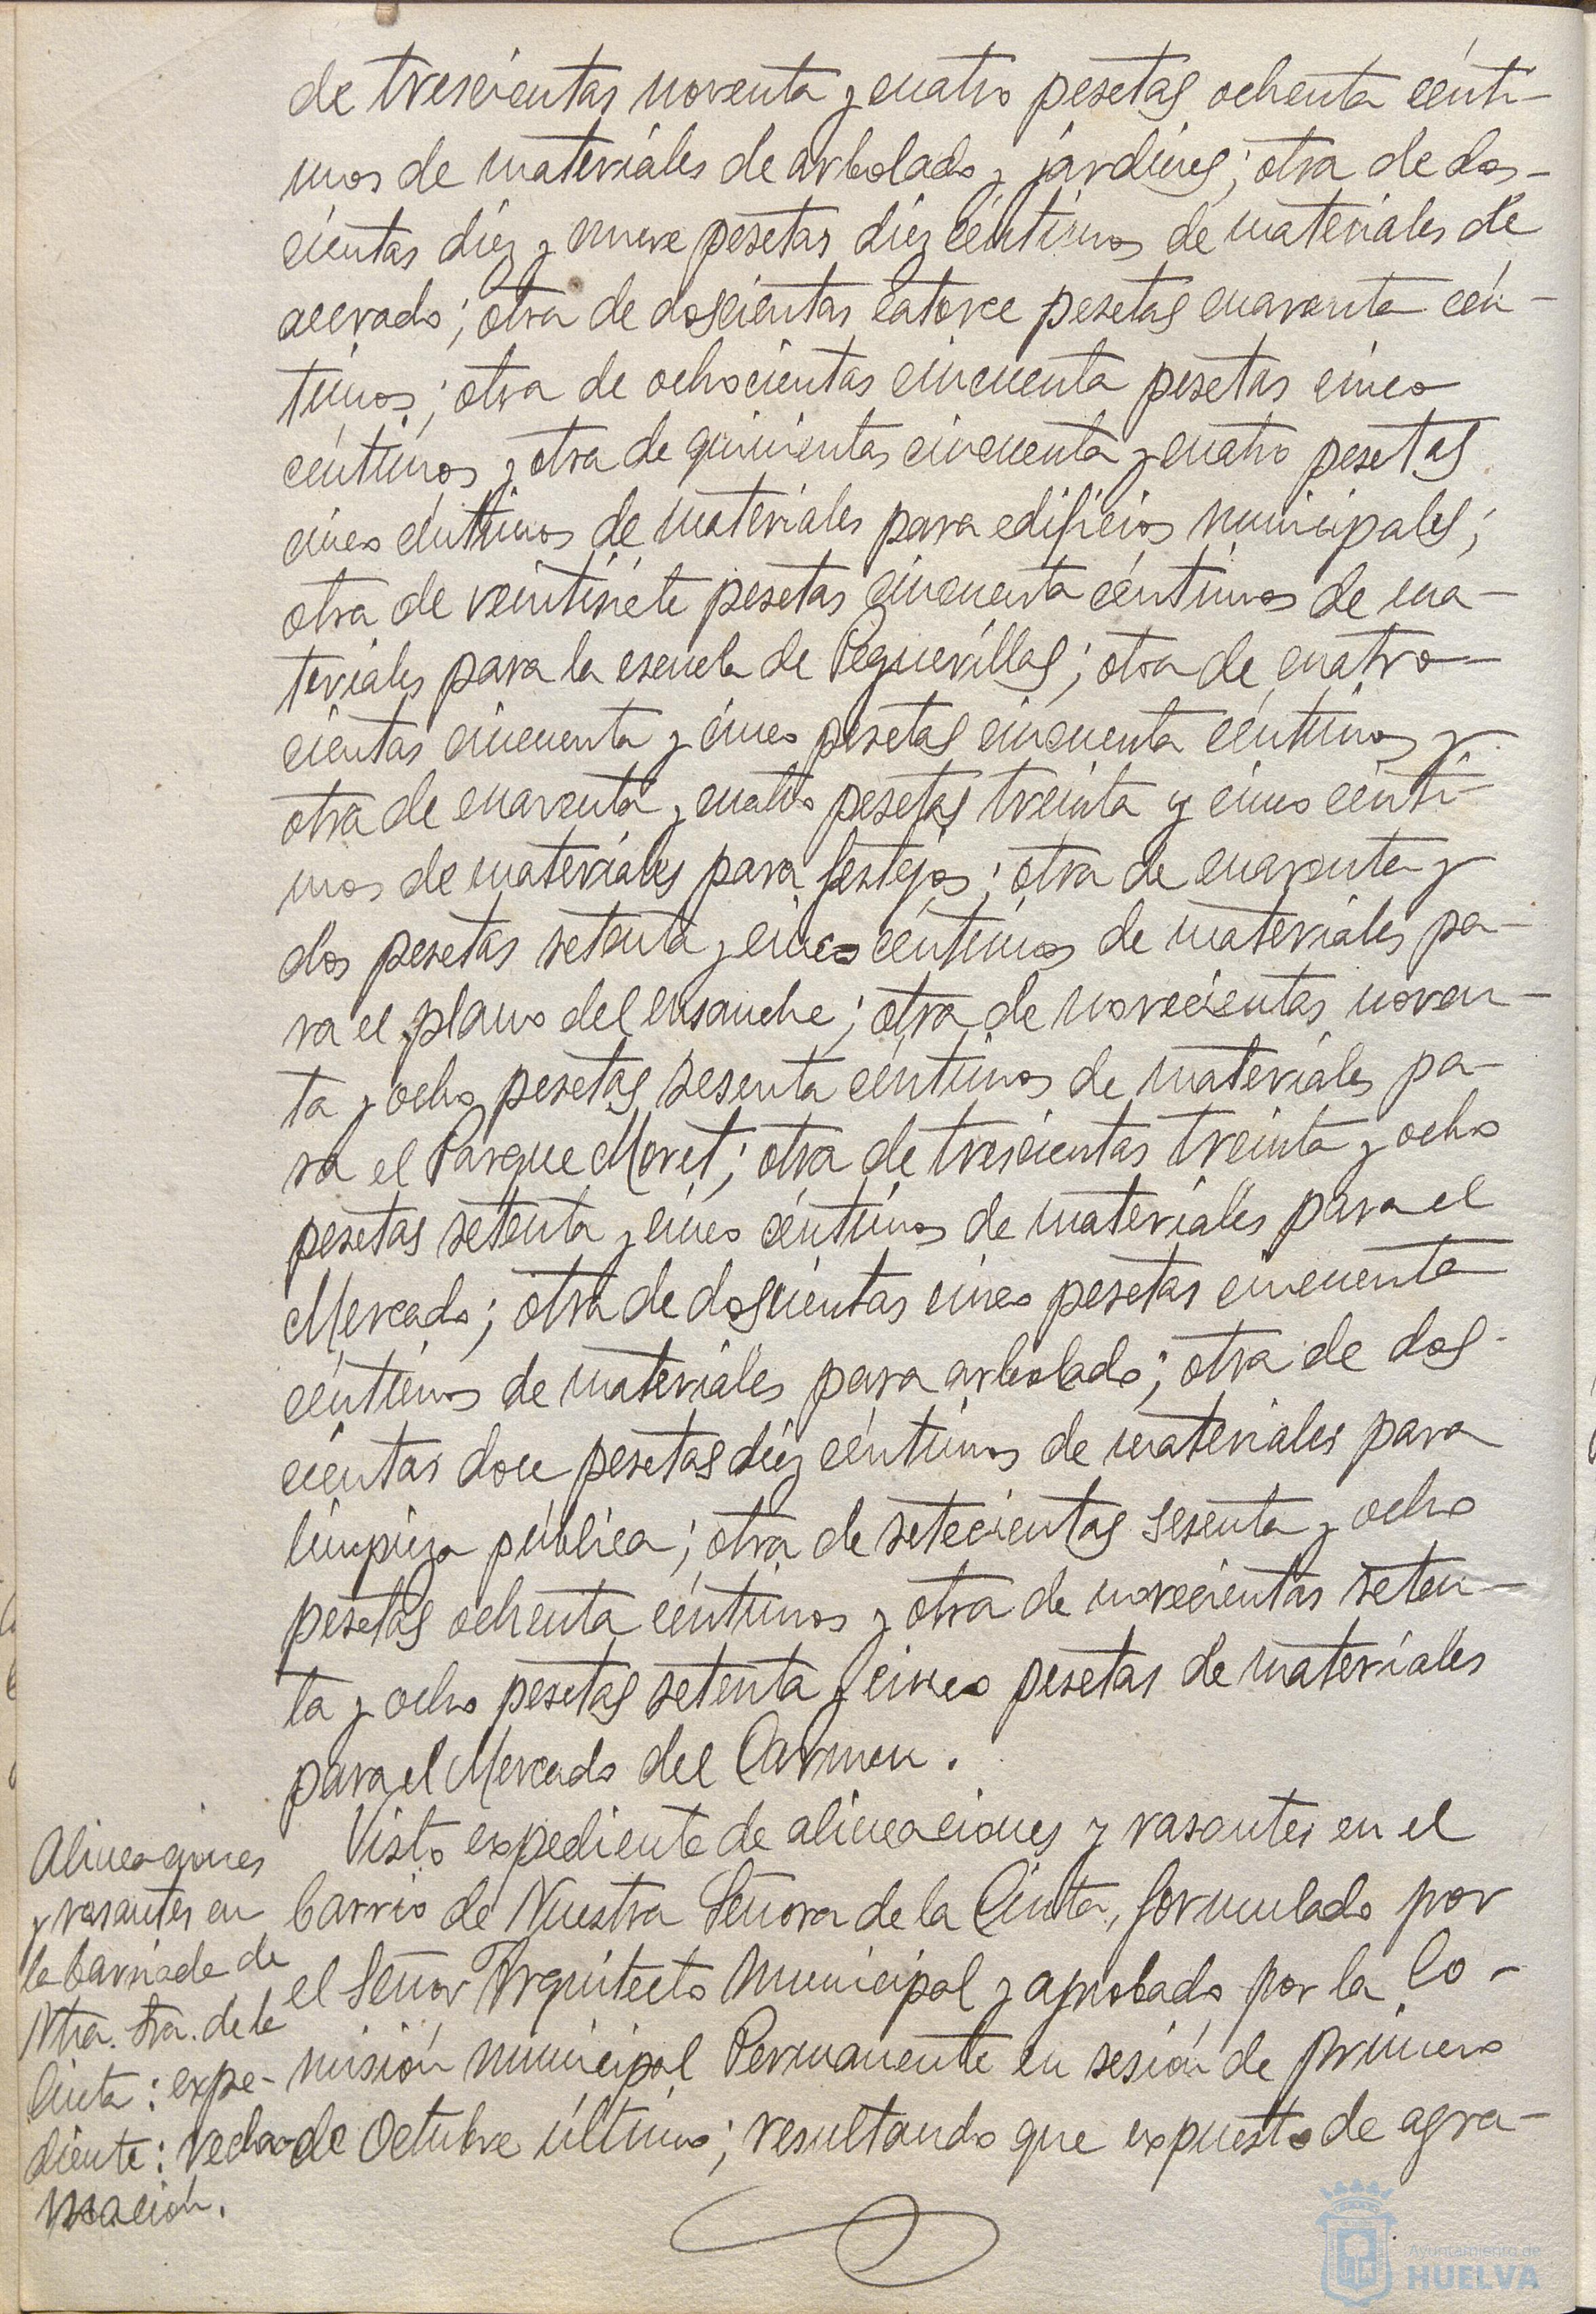 de trescientas noventa y cuatro pesetas ochenta cénti-
mos de materiales de arbolado y jardines; otra de dos-
cientas diez y nueve pesetas diez céntimos de materiales de
acerado; otra de doscientas catorce pesetas cuarenta cén-
timos; otra de ochocientas cincuenta pesetas cinco
céntimos y otra de quinientas cincuenta y cuatro pesetas
cinco céntimos de materiales para edificios municipales;
otra de veintisiete pesetas cincuenta céntimos de ma-
teriales para la escuela de Peguerillas; otra de cuatro-
cientas cincuenta y cinco pesetas cincuenta céntimos y
otra de cuarenta y cuatro pesetas treinta y cinco cénti-
mos de materiales para festejos; otra de cuarenta y
dos pesetas setenta y cinco céntimos de materiales pa-
ra el plano del ensanche; otra de novecientas noven-
ta y ocho pesetas sesenta céntimos de materiales pa-
ra el Parque Moret; otra de trescientas treinta y ocho
pesetas setenta y cinco céntimos de materiales para el
Mercado; otra de doscientas cinco pesetas cincuenta
céntimos de materiales para arbolado; otra de dos-
cientas doce pesetas diez céntimos de materiales para
limpieza pública; otra de setecientas sesenta y ocho
pesetas ochenta céntimos y otra de novecientas seten-
ta y ocho pesetas setenta y cinco pesetas de materiales
para el Mercado del Carmen.
Visto expediente de alineaciones y rasantes en el
barrio de Nuestra Señora de la Cinta, formulado por
el Señor Arquitecto Municipal y aprobado por la Co-
misión municipal Permanente en sesión de primero
de Octubre último; resultando que expuesto de agra-
Alineaciones
y rasantes en
la barriada de
Ntra. Sra. de la
Cinta: expe-
diente: recla-
mación.
Ayuntamiento de
HUELVA